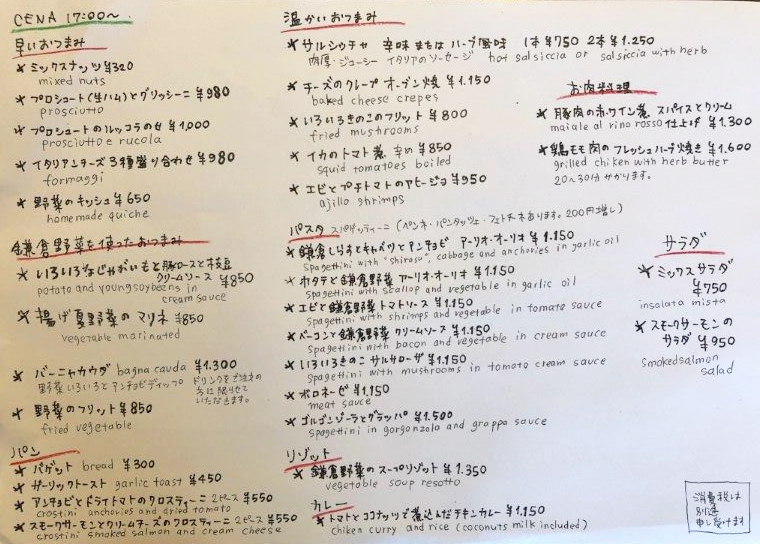 CENA 17:00〜
早いおつまみ
* ミックスナッツ ¥320
mixed nuts
* プロシュート(生ハム)とグリッシーニ ¥980
prosciutto
* プロシュートのルッコラのせ ¥1,000
prosciutto e rucola
* イタリアンチーズ3種盛り合わせ ¥980
formaggi
* 野菜のキッシュ ¥650
homemade quiche
鎌倉野菜を使ったおつまみ
* いろいろなじゃがいもと豚ロースと枝豆
クリームソース ¥850
potato and young soybeens in
cream sauce
* 揚げ夏野菜のマリネ ¥850
vegetable marinated
* バーニャカウダ bagna cauda ¥1.300
野菜いろいろとアンチョビディップ
ドリンクをご注文の
方に限らせて
いただきます。
* 野菜のフリット ¥850
fried vegetable
パン
* バゲット bread ¥300
* ガーリックトースト garlic toast ¥450
* アンチョビとドライトマトのクロスティーニ 2ピース ¥550
crostini anchovies and dried tomato
* スモークサーモンとクリームチーズのクロスティーニ 2ピース ¥550
crostini smoked salmon and cream cheese
温かいおつまみ
* サルシッチャ 辛味またはハーブ風味 1本 ¥750 2本 ¥1.250
肉厚・ジューシー イタリアのソーセージ hot salsiccia or salsiccia with herb
* チーズのクレープ オーブン焼 ¥1.150
baked cheese crepes
* いろいろきのこのフリット ¥800
fried mushrooms
* イカのトマト煮 辛め ¥850
squid tomatoes boiled
* エビとプチトマトのアヒージョ ¥950
ajillo shrimps
お肉料理
* 豚肉の赤ワイン煮 スパイスとクリーム
maiale al rino rosso 仕上げ ¥1.300
* 鶏モモ肉のフレッシュハーブ焼き ¥1.600
grilled chiken with herb butter
20〜30分かかります。
パスタ スパゲッティーニ (ペンネ・パンタッチェ・フェトチーネあります。200円増し)
* 鎌倉しらすとキャベツとアンチョビ アーリオ・オーリオ ¥1.150
spagettini with "shirasu", cabbage and anchovies in garlic oil
* ホタテと鎌倉野菜 アーリオ・オーリオ ¥1.150
spagettini with scallop and vegetable in garlic oil
* エビと鎌倉野菜 トマトソース ¥1.150
spagettini with shrimps and vegetable in tomato sauce
* ベーコンと鎌倉野菜 クリームソース ¥1.150
spagettini with bacon and vegetable in cream sauce
* いろいろきのこ サルサローザ ¥1.150
spagettini with mushrooms in tomato cream sauce
* ボロネーゼ ¥1.150
meat sauce
* ゴルゴンゾーラとグラッパ ¥1.500
spagettini in gorgonzola and grappa sauce
サラダ
* ミックスサラダ
¥750
insalata mista
* スモークサーモンの
サラダ ¥950
smokedsalmon
salad
リゾット
* 鎌倉野菜のスープリゾット ¥1.350
vegetable soup resotto
カレー
* トマトとココナッツで煮込んだチキンカレー ¥1.150
chiken curry and rice (coconuts milk included)
消費税は
別途
申し受けます